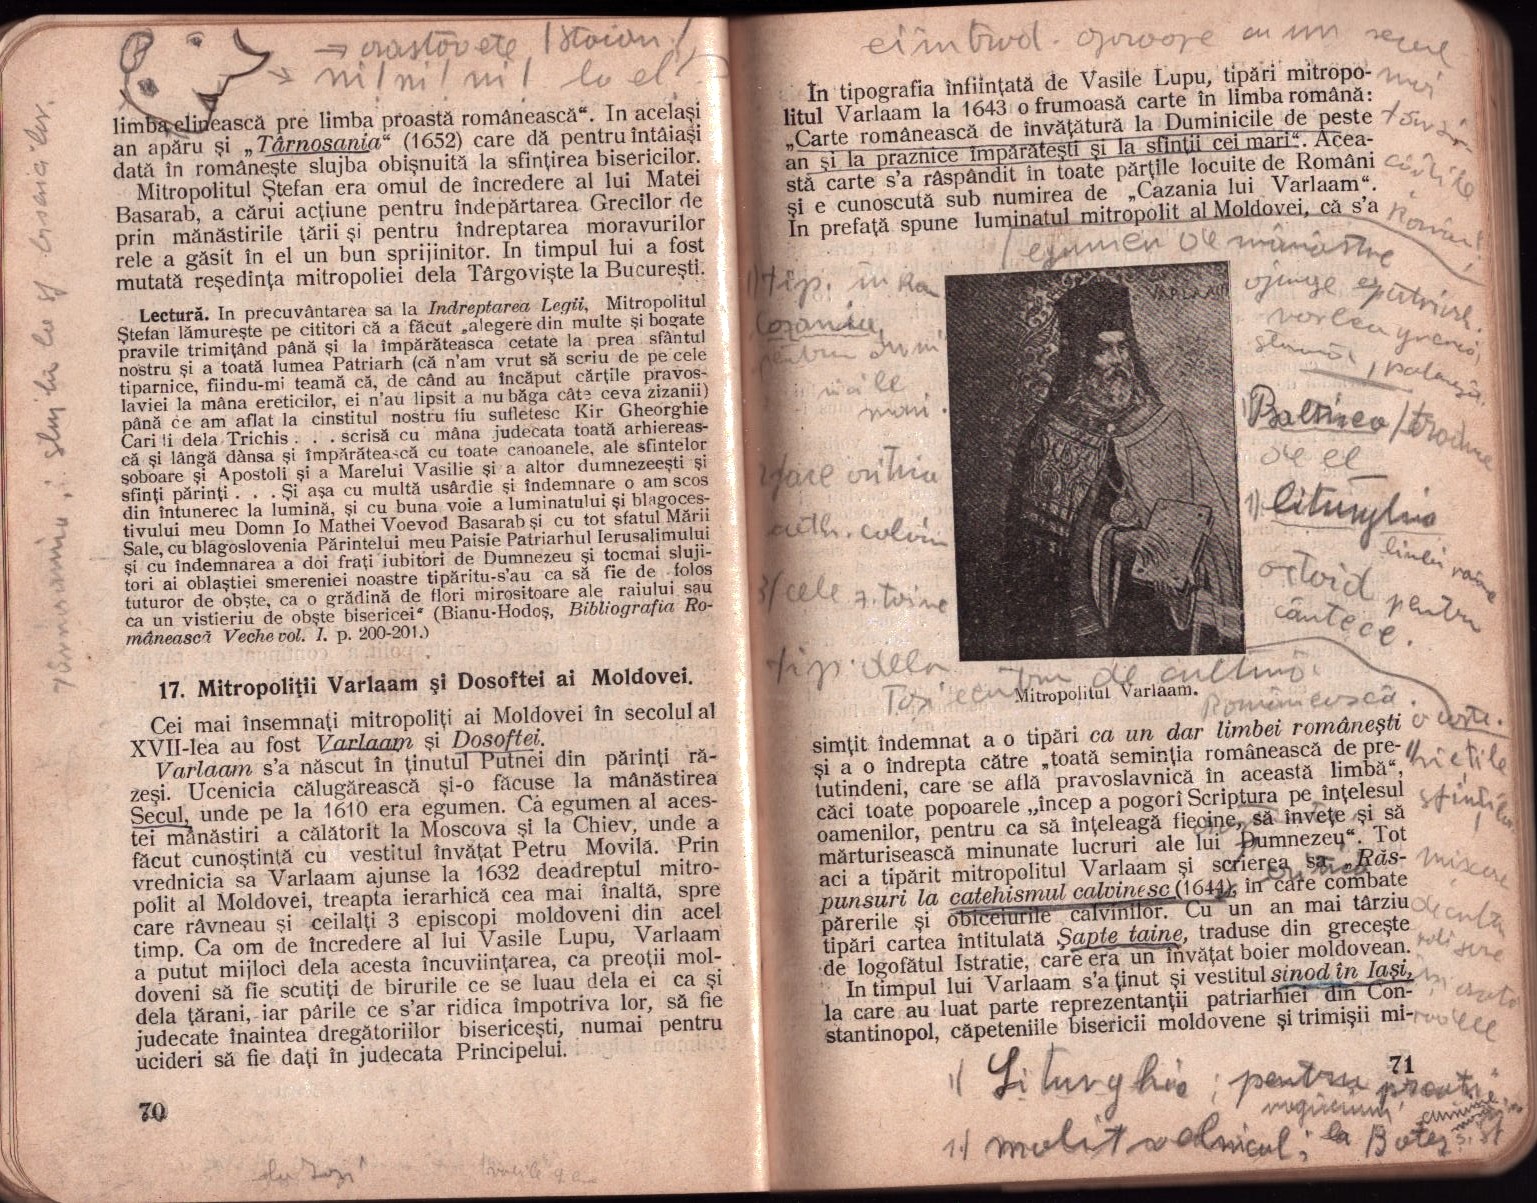 → crastavete Stoian!
→ ni! ni! ni! la el!
limba elinească pre limba proastă românească“. In acelaşi
an apăru şi „Târnosania“ (1652) care dă pentru întâiaşi
dată în româneşte slujba obişnuită la sfinţirea bisericilor.
Mitropolitul Ştefan era omul de încredere al lui Matei
Basarab, a cărui acţiune pentru îndepărtarea Grecilor de
prin mănăstirile ţării şi pentru îndreptarea moravurilor
rele a găsit în el un bun sprijinitor. In timpul lui a fost
mutată reşedinţa mitropoliei dela Târgovişte la Bucureşti.
Lectură. In precuvântarea sa la Indreptarea Legii, Mitropolitul
Ştefan lămureşte pe cititori că a făcut „alegere din multe şi bogate
pravile trimiţând până şi la împărăteasca cetate la prea sfântul
nostru şi a toată lumea Patriarh (că n'am vrut să scriu de pe cele
tiparnice, fiindu-mi teamă că, de când au încăput cărţile pravos-
laviei la mâna ereticilor, ei n'au lipsit a nu băga câte ceva zizanii)
până ce am aflat la cinstitul nostru fiu sufletesc Kir Gheorghie
Cari li dela Trichis . . . scrisă cu mâna judecata toată arhiereas-
că şi lângă dânsa şi împărătească cu toate canoanele, ale sfintelor
şoboare şi Apostoli şi a Marelui Vasilie şi a altor dumnezeeşti şi
sfinţi părinţi . . . Şi aşa cu multă usârdie şi îndemnare o am scos
din întunerec la lumină, şi cu buna voie a luminatului şi blagoces-
tivului meu Domn Io Mathei Voevod Basarab şi cu tot sfatul Mării
Sale, cu blagoslovenia Părintelui meu Paisie Patriarhul Ierusalimului
şi cu îndemnarea a doi fraţi iubitori de Dumnezeu şi tocmai sluji-
tori ai oblaştiei smereniei noastre tipăritu-s'au ca să fie de folos
tuturor de obşte, ca o grădină de flori mirositoare ale raiului sau
ca un vistieriu de obşte bisericei“ (Bianu-Hodoş, Bibliografia Ro-
mânească Veche vol. I. p. 200-201.)
17. Mitropoliţii Varlaam şi Dosoftei ai Moldovei.
Cei mai însemnaţi mitropoliţi ai Moldovei în secolul al
XVII-lea au fost Varlaam şi Dosoftei.
Varlaam s'a născut în ţinutul Putnei din părinţi ră-
zeşi. Ucenicia călugărească şi-o făcuse la mânăstirea
Secul, unde pe la 1610 era egumen. Ca egumen al aces-
tei mânăstiri a călătorit la Moscova şi la Chiev, unde a
făcut cunoştinţă cu vestitul învăţat Petru Movilă. Prin
vrednicia sa Varlaam ajunse la 1632 deadreptul mitro-
polit al Moldovei, treapta ierarhică cea mai înaltă, spre
care râvneau şi ceilalţi 3 episcopi moldoveni din acel
timp. Ca om de încredere al lui Vasile Lupu, Varlaam
a putut mijloci dela acesta încuviinţarea, ca preoţii mol-
doveni să fie scutiţi de birurile ce se luau dela ei ca şi
dela ţărani, iar pârile ce s'ar ridica împotriva lor, să fie
judecate înaintea dregătoriilor bisericeşti, numai pentru
ucideri să fie daţi în judecata Principelui.
70
In tipografia înfiinţată de Vasile Lupu, tipări mitropo-
litul Varlaam la 1643 o frumoasă carte în limba română:
„Carte românească de învăţătură la Duminicile de peste
an şi la praznice împărăteşti şi la sfinţii cei mari“. Acea-
stă carte s'a răspândit în toate părţile locuite de Români
şi e cunoscută sub numirea de „Cazania lui Varlaam“.
In prefaţă spune luminatul mitropolit al Moldovei, că s'a
egumen de mânăstire
1) tip. în Ro
Cazania,
pentru
mari.
2) face critica
cath. calvin
3) cele 7. taine
tip. dela
VARLAAM
ajunge
greacă,
1) Psaltirea / traduce
de el
1) liturghia
limbi
pentru
cântece.
de cultură
Românească
Mitropolitul Varlaam.
simţit îndemnat a o tipări ca un dar limbei româneşti
şi a o îndrepta către „toată seminţia românească de pre-
tutindeni, care se află pravoslavnică în această limbă“,
căci toate popoarele „încep a pogorî Scriptura pe înţelesul
oamenilor, pentru ca să înţeleagă fiecine, să înveţe şi să
mărturisească minunate lucruri ale lui Dumnezeu“. Tot
aci a tipărit mitropolitul Varlaam şi scrierea sa „Răs-
punsuri la catehismul calvinesc (1644), în care combate
părerile şi obiceiurile calvinilor. Cu un an mai târziu
tipări cartea întitulată Şapte taine, traduse din greceşte
de logofătul Istratie, care era un învăţat boier moldovean.
In timpul lui Varlaam s'a ţinut şi vestitul sinod în Iaşi,
la care au luat parte reprezentanţii patriarhiei din Con-
stantinopol, căpeteniile bisericii moldovene şi trimişii mi-
vieţile
sfinţilor
71
1) Liturghia; pentru preoţi
rugăciuni
1) molitvelnicul; la Botez